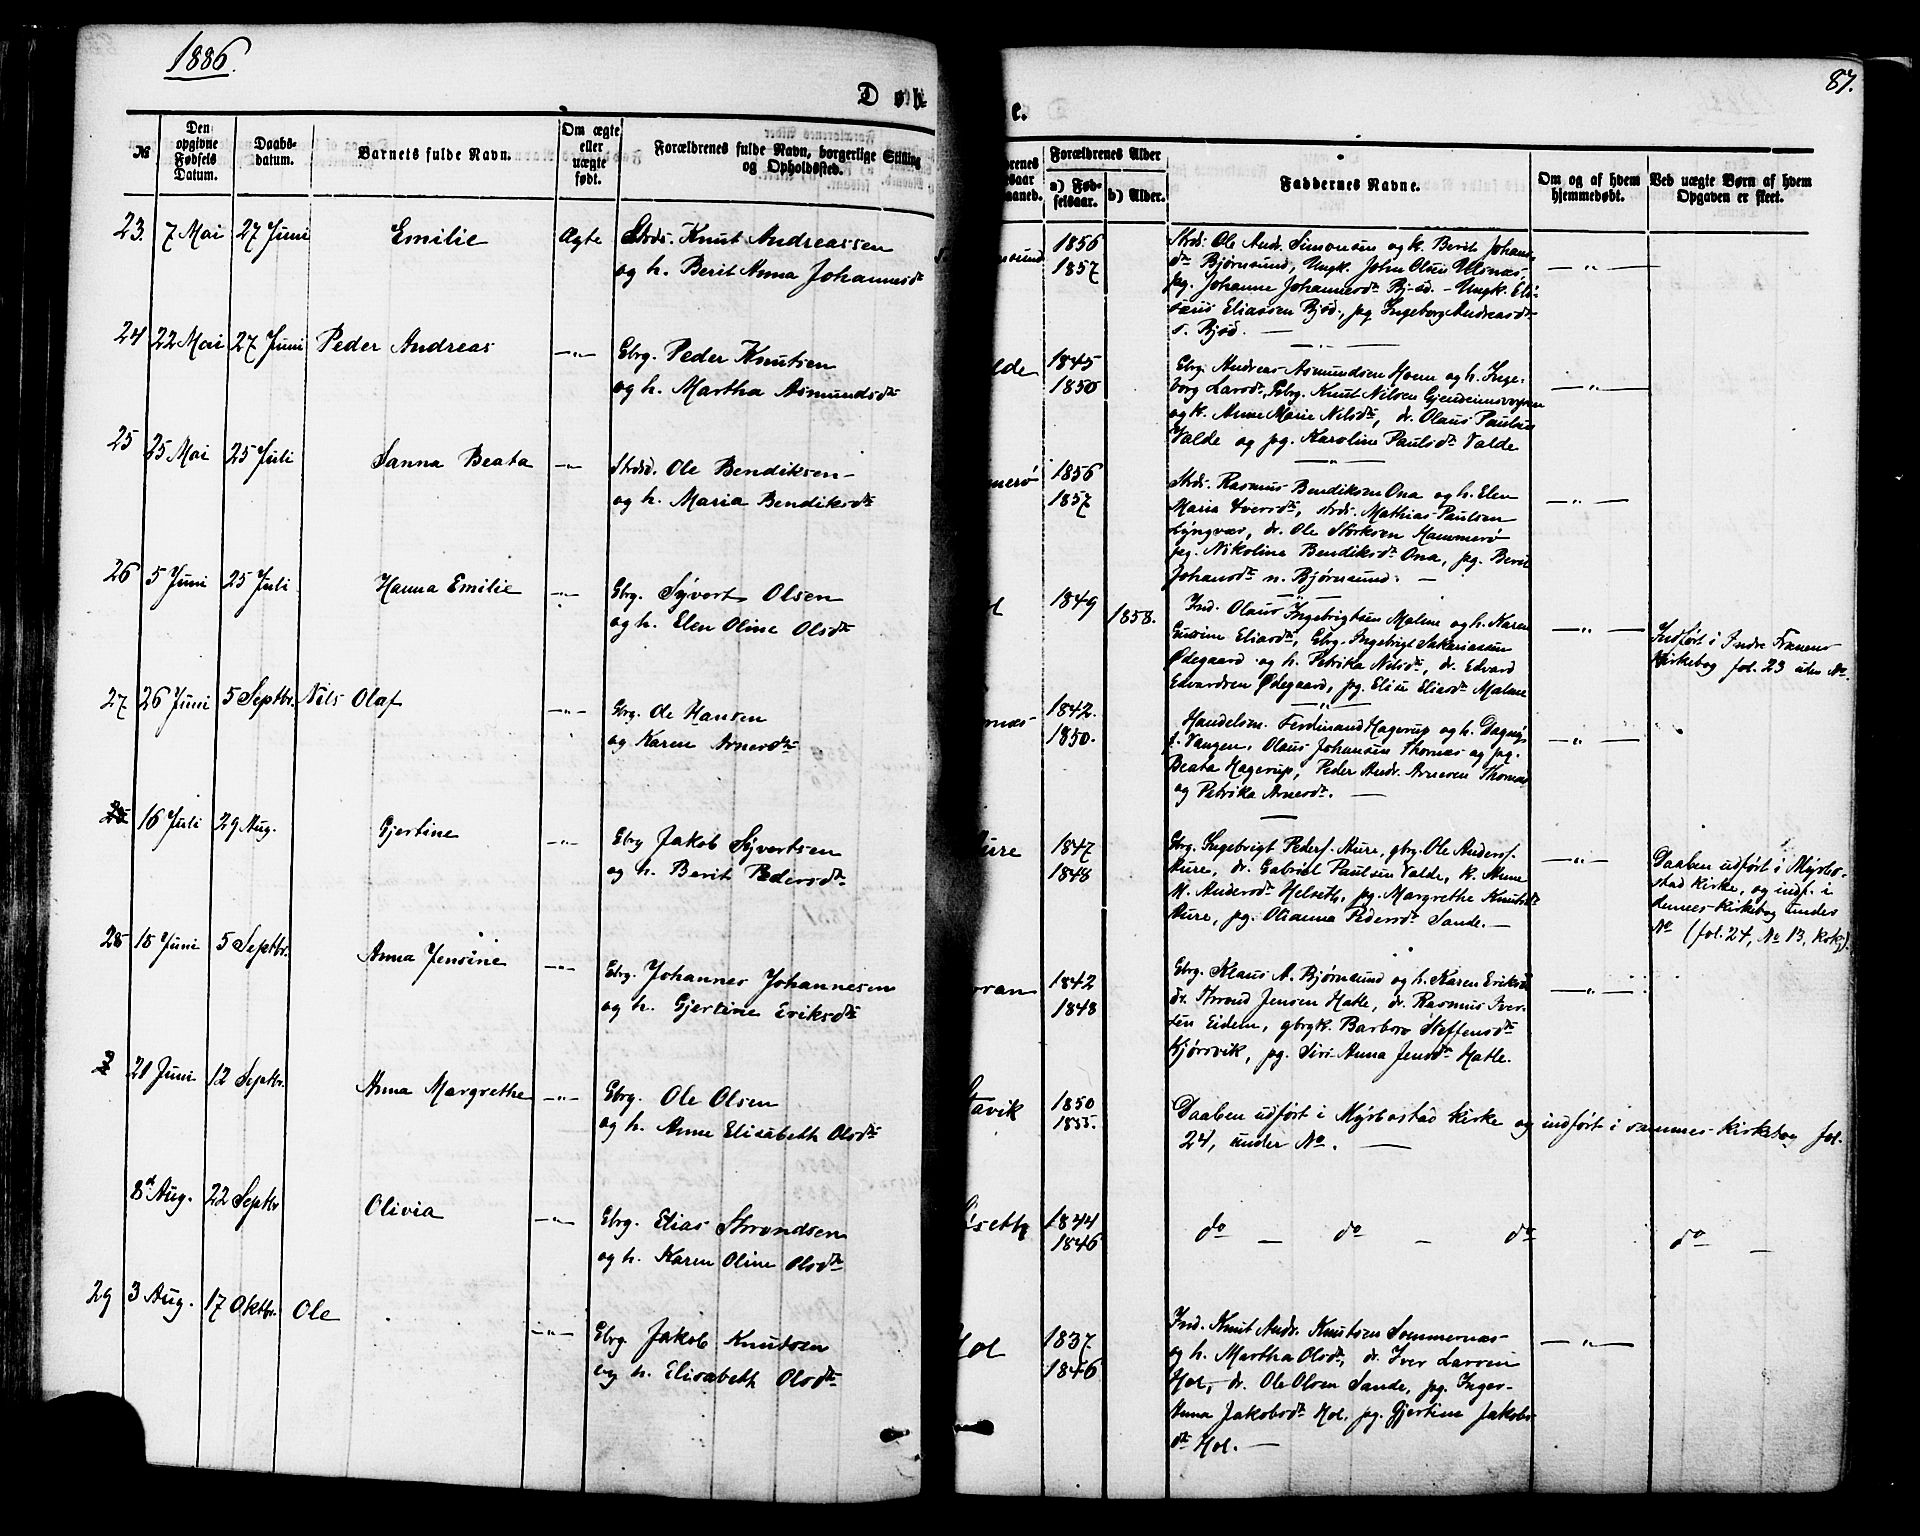 1886.
87.
D ø b
e.
№
Den opgivne Fødsels Datum.
Daabs-datum.
Barnets fulde Navn.
Om ægte eller uægte født.
Forældrenes fulde Navn, borgerlige Stilling og Opholdssted.
Forældrenes Alder
a) Fødselsaar.
b) Alder.
Faddernes Navne.
Om og af hvem hjemmedøbt.
Ved uægte Børn af hvem Opgaven er skeet.
23. 7 Mai 27 Juni Emilie Ægte Strds. Knut Andreassen
og h. Berit Anna Johannesdtr
1856
1857
Strds. Ole Andr. Simonsen og k. Berit Johans-
dtr Bjørnsund, Ungk. John Olsen Ulsnæs,
pg. Johanne Johannesdtr Bj-sd. - Ungk. Eli-
sæus Eliassen Bjsd., pg Ingeborg Andreasdtr
s. Bjsd. —
— " —
24 22 Mai 27 Juni Peder Andreas — " — Gbrg. Peder Knutsen
og h. Martha Asmundsdtr
lde
1845
1850
Gbrg. Andreas Asmundsen Moen og h. Inge-
borg Larsdtr, Gbrg. Knut Nilsen Gjendemsvogen
og k. Anne Marie Nilsdtr, dr. Olaus Paulsen
Valde og pg. Karoline Paulsdtr Valde
— " —
25 25 Mai 25 Juli Sanna Beata — " — Strdsd. Ole Bendiksen
og h. Maria Bendiksdtr
merø
1856
1857
Strds. Rasmus Bendiksen Ona og h. Elen
Maria Iversdtr, strds. Mathias Paulsen
Lyngvær, dr. Ole Størksen Hammerø
pg. Nikoline Bendiksdtr Ona, pg. Berit
Johansdtr n. Bjørnsund. —
— " —
26 5 Juni 25 Juli Hanna Emilie — " — Gbrg. Syvert Olsen
og h. Elen Oline Olsdtr
1849
1858.
Ind. Olaus Ingebrigtsen Malme og h. Karen
Gusine Eliasdtr, Gbrg. Ingebrigt Sakariassen
Ødegaard og h. Petrika Nilsdtr, dr. Edvard
Edvardsen Ødegaard, pg. Elise Eliasdtr Malme
— " —
Indført i Indre Frænens
Kirkebog fol. 23 uden No.
27 26 Juni 5 Septbr. Nils Olaf — " — Gbrg. Ole Hansen
og Karen Arnesdtr
rnæs
1842.
1850.
Handelsm. Ferdinand Hagerup og h. Dagny
f. Vangen, Olaus Johansen Thornæs og pg.
Beata Hagerup, Peder Andr. Arnesen Thornæs
og Petrika Arnesdtr. —
— " —
16 Juli 29 Aug. Gjertine — " — Gbrg Jakob Syvertsen
og h. Berit Pedersdtr
Aure
1847
1848
Gbrg. Ingebrigt Peders. Aure, gbrg. Ole Anders.
Aure, dr. Gabriel Paulsen Valde, k. Anne
M. Andersdtr Helseth, pg. Margrethe Knutsdtr
Aure, pg. Olianna Pedersdtr Sande. —
— " —
Daaben udført i Myrbo-
stad Kirke, og indf. i
dennes Kirkebog under
No (fol. 24, No 13, kbkg).
28 15 Juni 5 Septbr. Anna Jensine — " — Gbrg. Johannes Johannesen
og h. Gjertine Eriksdtr
1842
1848
Gbrg. Klaus A. Bjørnsund og h. Karen Eriksdtr
dr. Thrond Jensen Hatle, dr. Rasmus Iver-
sen Eidem, gbrgk. Barbro Steffensdtr
Kjørsvik, pg. Siri Anna Jensdtr Hatle.
— " —
21 Juni 12 Septbr. Anna Margrethe — " — Gbrg. Ole Olsen
og h. Anne Elisabeth Olsdtr
tavik
1850
1855.
Daaben udført i Myrbostad Kirke og indført i sammes Kirkebog fol.
24, under No. —
8d Aug. 22 Septbr Olivia — " — Gbrg. Elias Throndsen
og h. Karen Oline Olsdtr
seth
1844
1846
do — do — do do —
29 3 Aug. 17 Oktbr. Ole — " — Gbrg. Jakob Knutsen
og h. Elisabeth Olsdtr
Hol
1837
1846
Ind. Knut Andr. Knutsen Sommernæs
og h. Martha Olsdtr, dr. Iver Larsen
Hol, dr. Ole Olsen Sande, pg. Inger-
Anna Jakobsdtr Hol, pg. Gjertine Jakobs-
dtr Hol. —
— " —